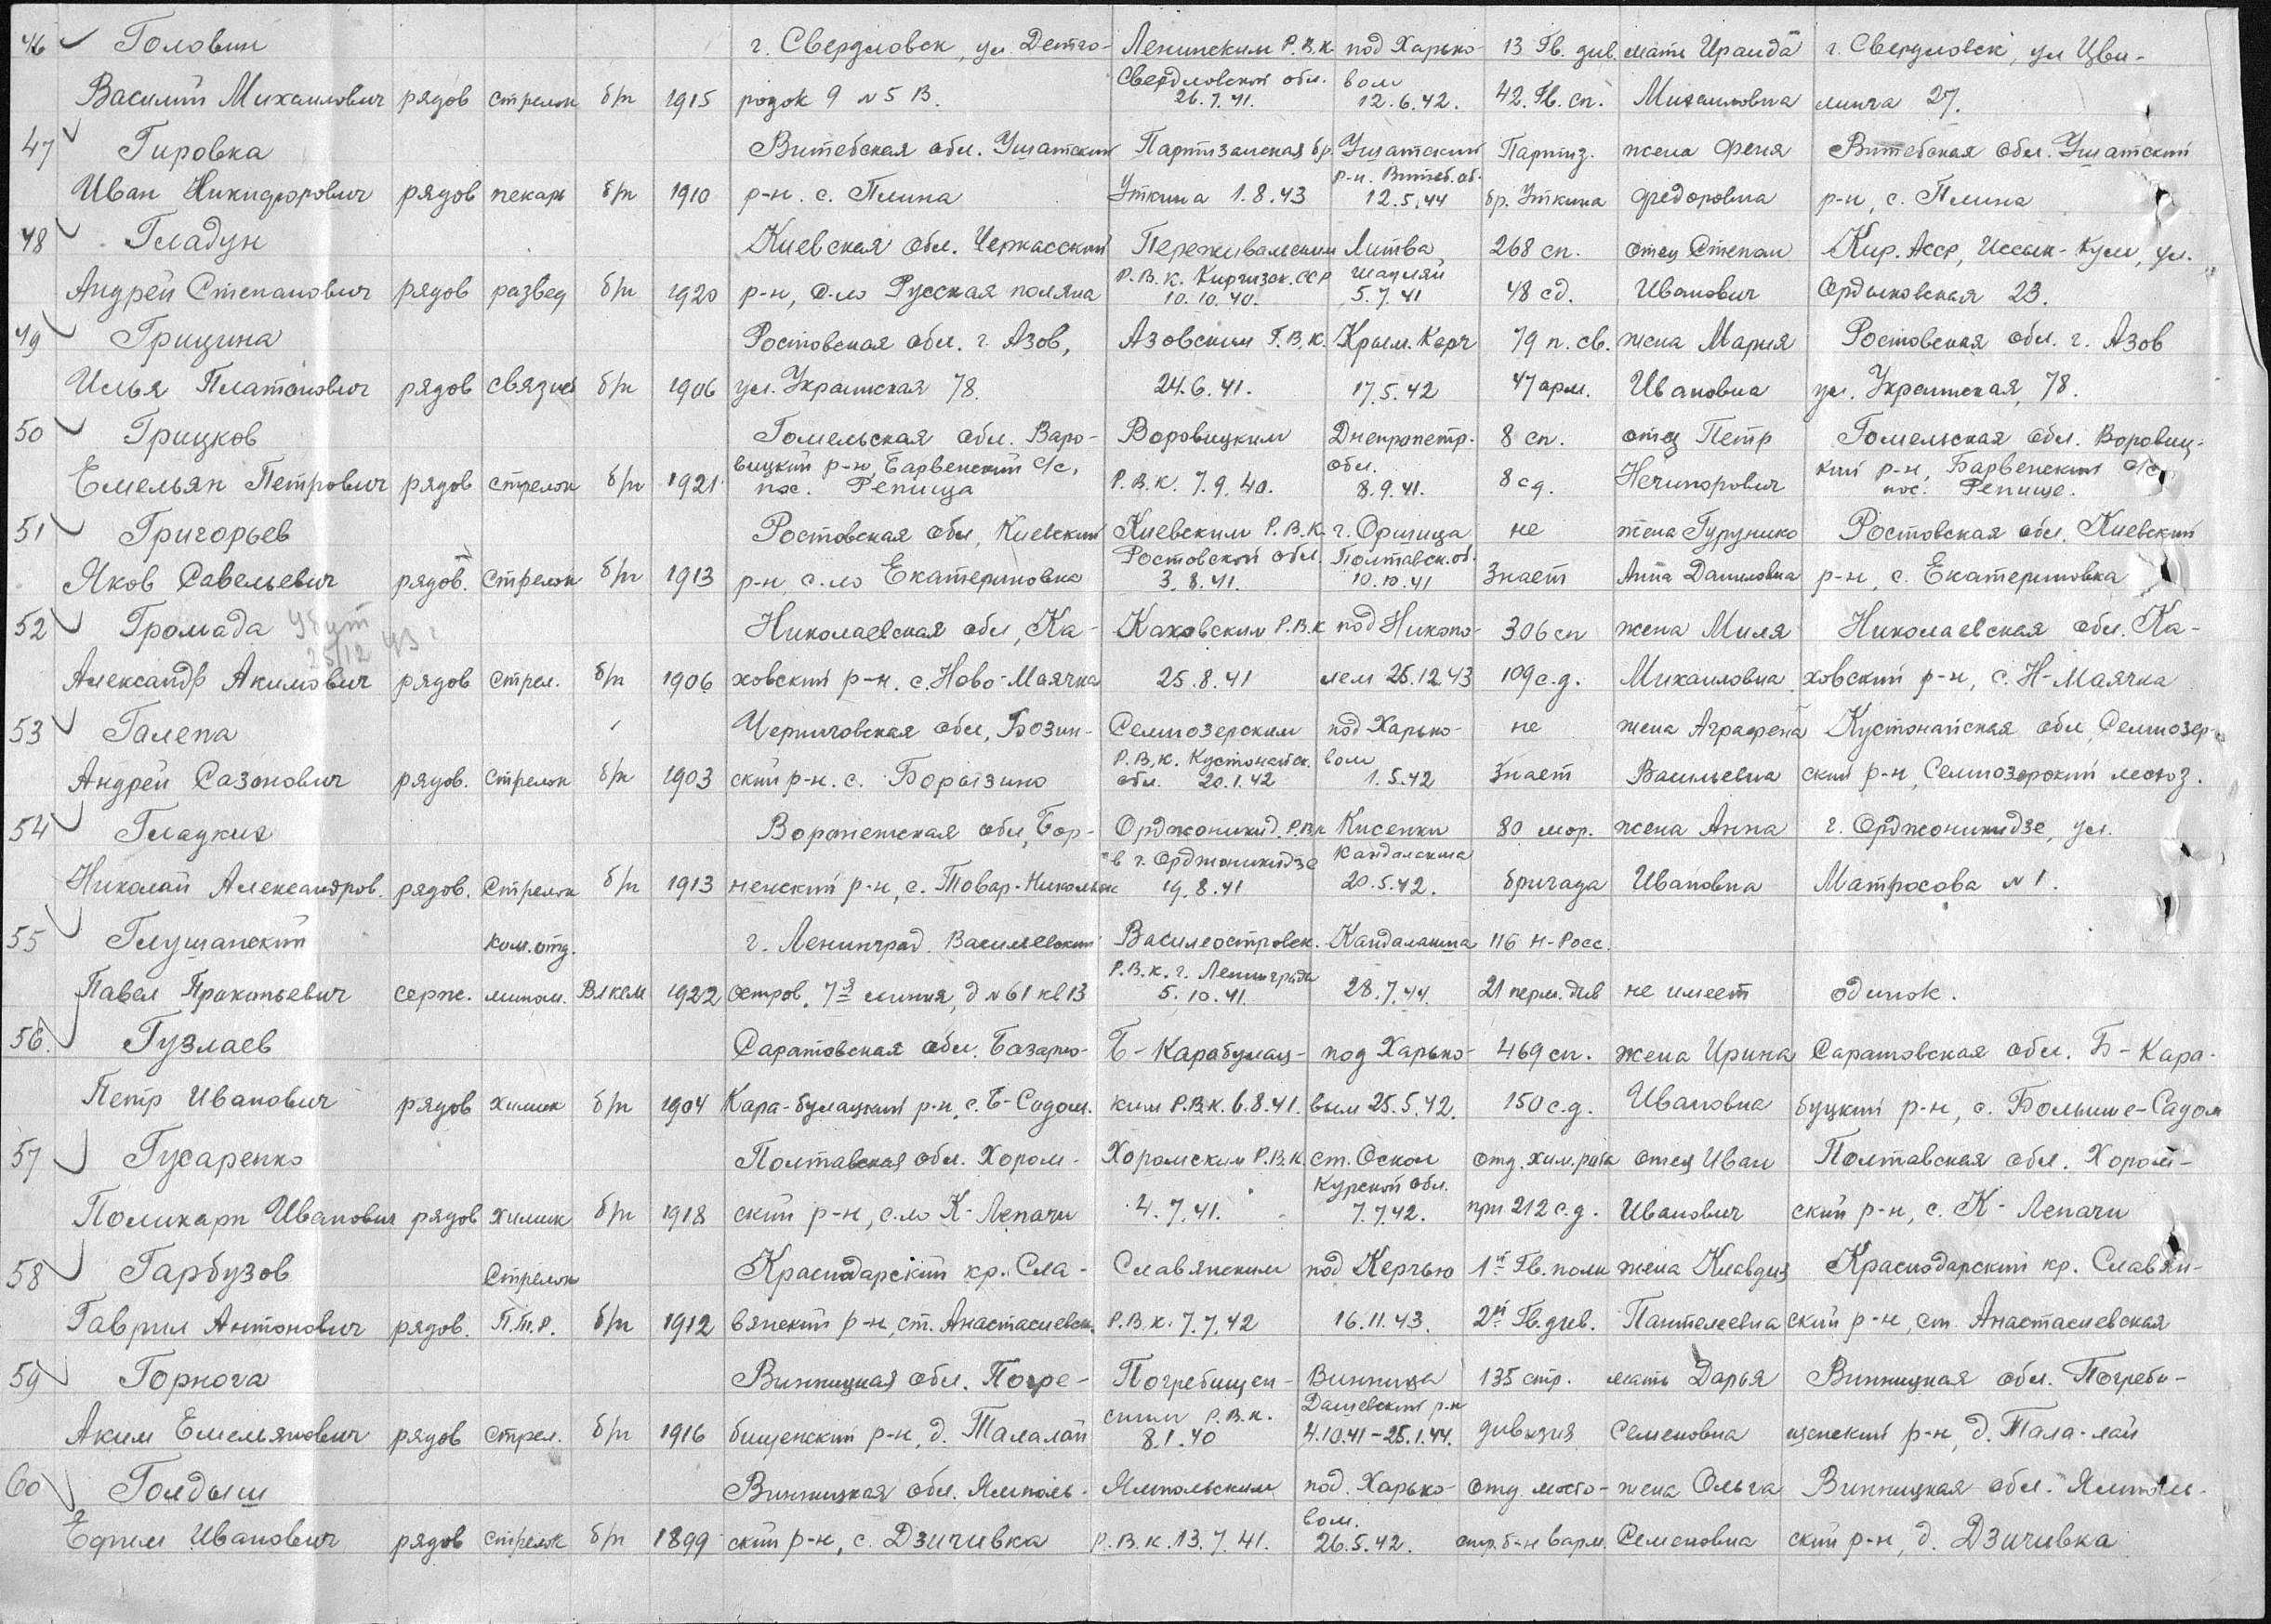 46 Головин г. Свердловск, ул. Детго- Ленинским Р.В.К. под Харько- 13 Гв. див. мать Ираида г. Свердловск, ул Цви-
Свердловской обл. вом
Василий Михаилович рядов стрелок б/п 1915 родок 9 N 5 В. 26.7.41. 12.6.42. 42. Гв. сп. Михаиловна линга 27.
47 Гировка Витебская обл. Ушатский Партизанская бр. Ушатский Партиз. жена Феня Витебская обл. Ушатский
р-н. Витеб. об.
Иван Никифорович рядов пекарь б/п 1910 р-н. с. Плина Уткина 1.8.43 12.5.44 бр. Уткина Федоровна р-н, с. Плина
48 Гладун Киевская обл. Черкасский Пережевальским Литва 268 сп. отец Степан Кир. Асср, Иссык-Кул, ул.
Р.В.К. Киргизск. ССР шауляй
Андрей Степанович рядов развед б/п 1920 р-н, с-ло Русская поляна 10.10.40. 5.7.41 48 сд. Иванович Ордыновская 23.
49 Грицина Ростовская обл. г. Азов, Азовским Г.В.К. Крым. Керч 79 п. св. жена Мария Ростовская обл. г. Азов
Илья Платонович рядов связист б/п 1906 ул. Украинская 78. 24.6.41. 17.5.42 47 арм. Ивановна ул. Украинская, 78.
50 Грицков Гомельская обл. Варо- Воровицким Днепропетр. 8 сп. отец Петр Гомельская обл. Воровиц-
вицкий р-н, Барвенский с/с, обл. кий р-н, Барвенский с/с,
Емельян Петрович рядов стрелок б/п 1921 пос. Репища Р.В.К. 7.9.40. 8.9.41. 8 сд. Нечипорович пос. Репище.
51 Григорьев Ростовская обл, Киевский Киевским Р.В.К. г. Оржица не жена Гурунико Ростовская обл. Киевский
Ростовской обл. Полтавск. об.
Яков Савельевич рядов. стрелок б/п 1913 р-н, с-ло Екатериновка 3.8.41. 10.10.41 знает Анна Даниловна р-н, с. Екатериновка
52 Громада Николаевская обл, Ка- Каховским Р.В.К под Никопо- 306 сп жена Миля Николаевская обл. Ка-
25/12 43
Александр Акимович рядов стрел. б/п 1906 ховский р-н. с. Ново-Маячка 25.8.41 лем 25.12.43 109 с.д. Михаиловна ховский р-н, с. Н-Маячка
53 Галепа Черниговская обл, Бозин- Семиозерским под Харько- не жена Аграфена Кустонайская обл, Семиозер-
Р.В.К. Кустонайск. вом
Андрей Сазонович рядов. стрелок б/п 1903 ский р-н. с. Борызино обл. 20.1.42 1.5.42 знает Васильевна ский р-н, Семиозерский
54 Гладких Воронежская обл, Бор- Орджоникид. Р.В.К Кисенки 80 мор. жена Анна г. Орджоникидзе, ул.
в г. Орджоникидзе Кандалакша
Николай Александров. рядов. стрелок б/п 1913 ненский р-н, с. Товар-Никольск 19.8.41 20.5.42. бригада Ивановна Матросова N 1.
55 Глушанский ком. отд. г. Ленинград. Васильевский Василеостровск. Кандалакша 116 Н-Росс.
Р.В.К. г. Ленинграда
Павел Прокопьевич серж. мином. Влксм 1922 остров, 7я линия, д N 61 кв 13 5.10.41. 28.7.44. 21 перм. див не имеет одинок.
56. Гузлаев Саратовская обл. Базарно- Б-Карабулац- под Харько- 469 сп. жена Ирина Саратовская обл. Б-Кара-
Петр Иванович рядов химик б/п 1904 Кара-булацкий р-н, с. Б-Содом. ким Р.В.К. 6.8.41. вым 25.5.42. 150 с.д. Ивановна буцкий р-н, с. Больше-Садом
57 Гусаренко Полтавская обл. Хором- Хорамским Р.В.К. ст. Оскол отд. хим. рота отец Иван Полтавская обл. Хором-
Курской обл.
Поликарп Иванович рядов химик б/п 1918 ский р-н, с.ло К-Лепачи 4.7.41. 7.7.42. при 212 с.д. Иванович ский р-н, с. К-Лепачи
58 Гарбузов стрелок Краснодарский кр. Сла- Славянским под Керчью 1й Гв. полк жена Клавдия Краснодарский кр. Славян-
Гаврил Антонович рядов. П.Т.Р. б/п 1912 вянский р-н, ст. Анастасиевск. Р.В.К. 7.7.42 16.11.43. 2й Гв. див. Пантелеевна ский р-н, ст. Анастасиевская
59 Горнога Винницкая обл. Погре- Погребищен- Винница 135 стр. мать Дарья Винницкая обл. Погреби-
ским Р.В.К. Дашевский р-н
Аким Емельянович рядов стрел. б/п 1916 бищенский р-н, д. Талалай 8.1.40 4.10.41-25.1.44. дивизия Семеновна щенский р-н, д. Тала-лай
60 Голдыш Винницкая обл. Ямполь- Ямпольским под. Харько- отд. мосто- жена Ольга Винницкая обл. Ямполь-
вом.
Ефим Иванович рядов стрелок б/п 1899 ский р-н, с. Дзигивка Р.В.К. 13.7.41. 26.5.42. стр. б-н варм. Семеновна ский р-н, д. Дзигивка